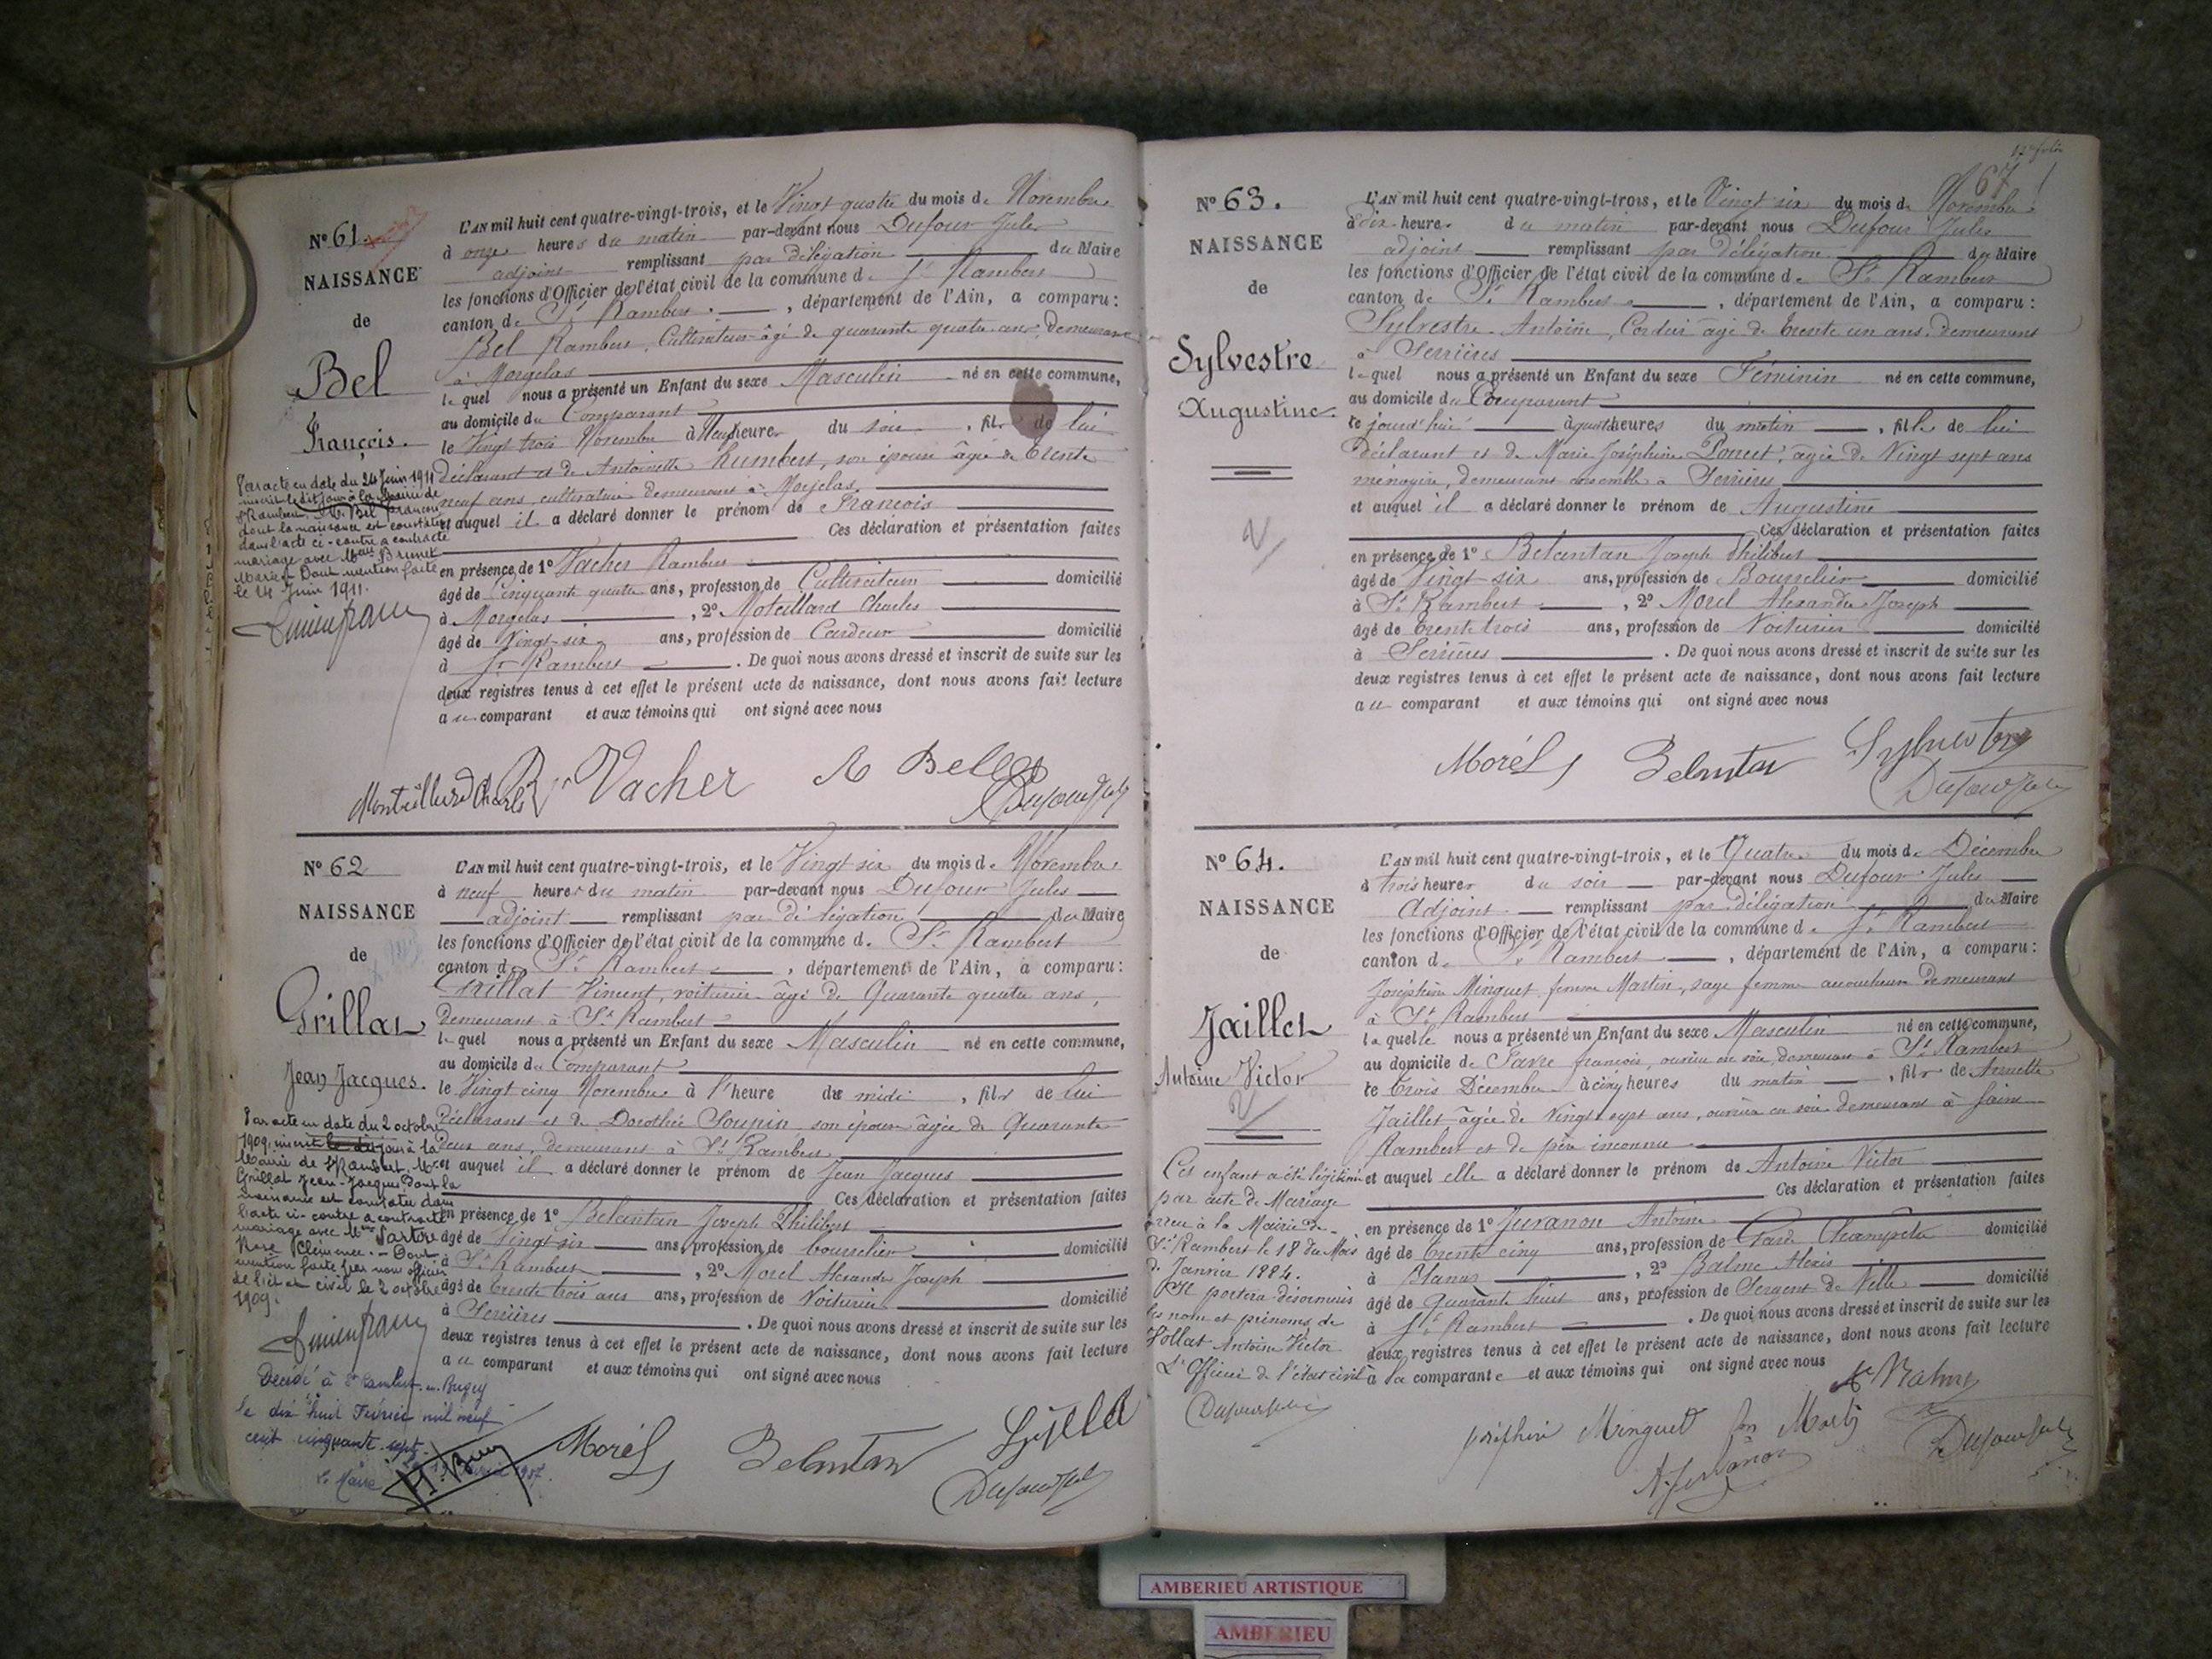 N° 61.
NAISSANCE
de
Bel
François.
Par acte en date du 24 Juin 1911
inscrit le dit jour à la Mairie de
St Rambert, Mr Bel François
dont la naissance est constatée
dans l'acte ci-contre a contracté
mariage avec Melle Brunet
Marie. Dont mention faite
le 24 Juin 1911.
L'AN mil huit cent quatre-vingt-trois, et le Vingt quatre du mois de Novembre
à onze heures du matin par-devant nous Dufour Jules
adjoint remplissant par délégation du Maire
les fonctions d'Officier de l'état civil de la commune de St Rambert
canton de St Rambert, département de l'Ain, a comparu:
Bel Rambert, Cultivateur âgé de quarante quatre ans, demeurant
à Morgelas
lequel nous a présenté un Enfant du sexe Masculin né en cette commune,
au domicile du Comparant
le Vingt trois Novembre à Neuf heures du soir, fils de lui
déclarant et de Antoinette Humbert, son épouse âgée de trente
neuf ans, cultivatrice demeurant à Morgelas
et auquel il a déclaré donner le prénom de François
Ces déclaration et présentation faites
en présence de 1° Vacher Rambert
âgé de Cinquante quatre ans, profession de Cultivateur domicilié
à Morgelas, 2° Moteillard Charles
âgé de Vingt six ans, profession de Cardeur domicilié
à St Rambert. De quoi nous avons dressé et inscrit de suite sur les
deux registres tenus à cet effet le présent acte de naissance, dont nous avons fait lecture
au comparant et aux témoins qui ont signé avec nous
Monteillard Charles Vacher R Bel Dufour Jules
N° 62
NAISSANCE
de
Grillat
Jean Jacques.
Par acte en date du 2 octobre
1909, inscrit le dit jour à la
Mairie de St Rambert, Mr
Grillat Jean-Jacques dont la
naissance est constatée dans
l'acte ci-contre a contracté
mariage avec Melle Sartore
Rose Clémence. - Dont
mention faite par nous officier
de l'état civil le 2 octobre
1909.
Décédé à St Rambert-en-Bugey
le dix huit Février mil neuf
cent cinquante-sept.
Le Maire
L'AN mil huit cent quatre-vingt-trois, et le Vingt six du mois de Novembre
à neuf heures du matin par-devant nous Dufour Jules
adjoint remplissant par délégation du Maire
les fonctions d'Officier de l'état civil de la commune de St Rambert
canton de St Rambert, département de l'Ain, a comparu:
Grillat Vincent, voiturier âgé de Quarante quatre ans,
demeurant à St Rambert
lequel nous a présenté un Enfant du sexe Masculin né en cette commune,
au domicile du Comparant
le Vingt cinq Novembre à 1 heure du midi, fils de lui
déclarant et de Dorothée Soupin son épouse âgée de Quarante
deux ans, demeurant à St Rambert
et auquel il a déclaré donner le prénom de Jean Jacques
Ces déclaration et présentation faites
en présence de 1° Belantan Joseph Philibert
âgé de Vingt six ans, profession de bourrelier domicilié
à St Rambert, 2° Morel Alexandre Joseph
âgé de trente trois ans ans, profession de Voiturier domicilié
à Serrières. De quoi nous avons dressé et inscrit de suite sur les
deux registres tenus à cet effet le présent acte de naissance, dont nous avons fait lecture
au comparant et aux témoins qui ont signé avec nous
Morel Belantan Grillat
Dufour Jules
67
N° 63.
NAISSANCE
de
Sylvestre
Augustine.
L'AN mil huit cent quatre-vingt-trois, et le Vingt six du mois de Novembre
à dix heures du matin par-devant nous Dufour Jules
adjoint remplissant par délégation du Maire
les fonctions d'Officier de l'état civil de la commune de St Rambert
canton de St Rambert, département de l'Ain, a comparu:
Sylvestre Antoine, Cordier âgé de trente un ans, demeurant
à Serrières
lequel nous a présenté un Enfant du sexe Féminin né en cette commune,
au domicile du Comparant
ce jourd'hui à quatre heures du matin, fille de lui
déclarant et de Marie Joséphine Poncet, âgée de Vingt sept ans
ménagère, demeurant ensemble à Serrières
et auquel il a déclaré donner le prénom de Augustine
Ces déclaration et présentation faites
en présence de 1° Belantan Joseph Philibert
âgé de Vingt-six ans, profession de Bourrelier domicilié
à St Rambert, 2° Morel Alexandre Joseph
âgé de trente trois ans, profession de Voiturier domicilié
à Serrières. De quoi nous avons dressé et inscrit de suite sur les
deux registres tenus à cet effet le présent acte de naissance, dont nous avons fait lecture
au comparant et aux témoins qui ont signé avec nous
Morel Belantan Sylvestre
Dufour Jules
N° 64.
NAISSANCE
de
Jaillet
Antoine Victor
Cet enfant a été légitimé
par acte de Mariage
reçu à la Mairie de
St Rambert le 18 du Mois
de Janvier 1884.
Il portera désormais
les nom et prénoms de
Vollat Antoine Victor
L'Officier de l'état civil
Dufour Jules
L'AN mil huit cent quatre-vingt-trois, et le Quatre du mois de Décembre
à trois heures du soir par-devant nous Dufour Jules
Adjoint remplissant par délégation du Maire
les fonctions d'Officier de l'état civil de la commune de St Rambert
canton de St Rambert, département de l'Ain, a comparu:
Joséphine Minguet femme Martin, sage femme accoucheuse demeurant
à St Rambert
laquelle nous a présenté un Enfant du sexe Masculin né en cette commune,
au domicile de Favre françois, ouvrier en soie, demeurant à St Rambert
le trois Décembre à cinq heures du matin, fils de Annette
Jaillet âgée de Vingt sept ans, ouvrière en soie demeurant à Saint
Rambert et de père inconnu
et auquel elle a déclaré donner le prénom de Antoine Victor
Ces déclaration et présentation faites
en présence de 1° Juranon Antoine
âgé de trente cinq ans, profession de Garde Champêtre domicilié
à Blanas, 2° Balme Alexis
âgé de quarante huit ans, profession de Sergent de Ville domicilié
à St Rambert. De quoi nous avons dressé et inscrit de suite sur les
deux registres tenus à cet effet le présent acte de naissance, dont nous avons fait lecture
à la comparante et aux témoins qui ont signé avec nous
Balme
Joséphine Minguet fe Martin
A. Juranon
Dufour Jules
AMBERIEU ARTISTIQUE
AMBERIEU